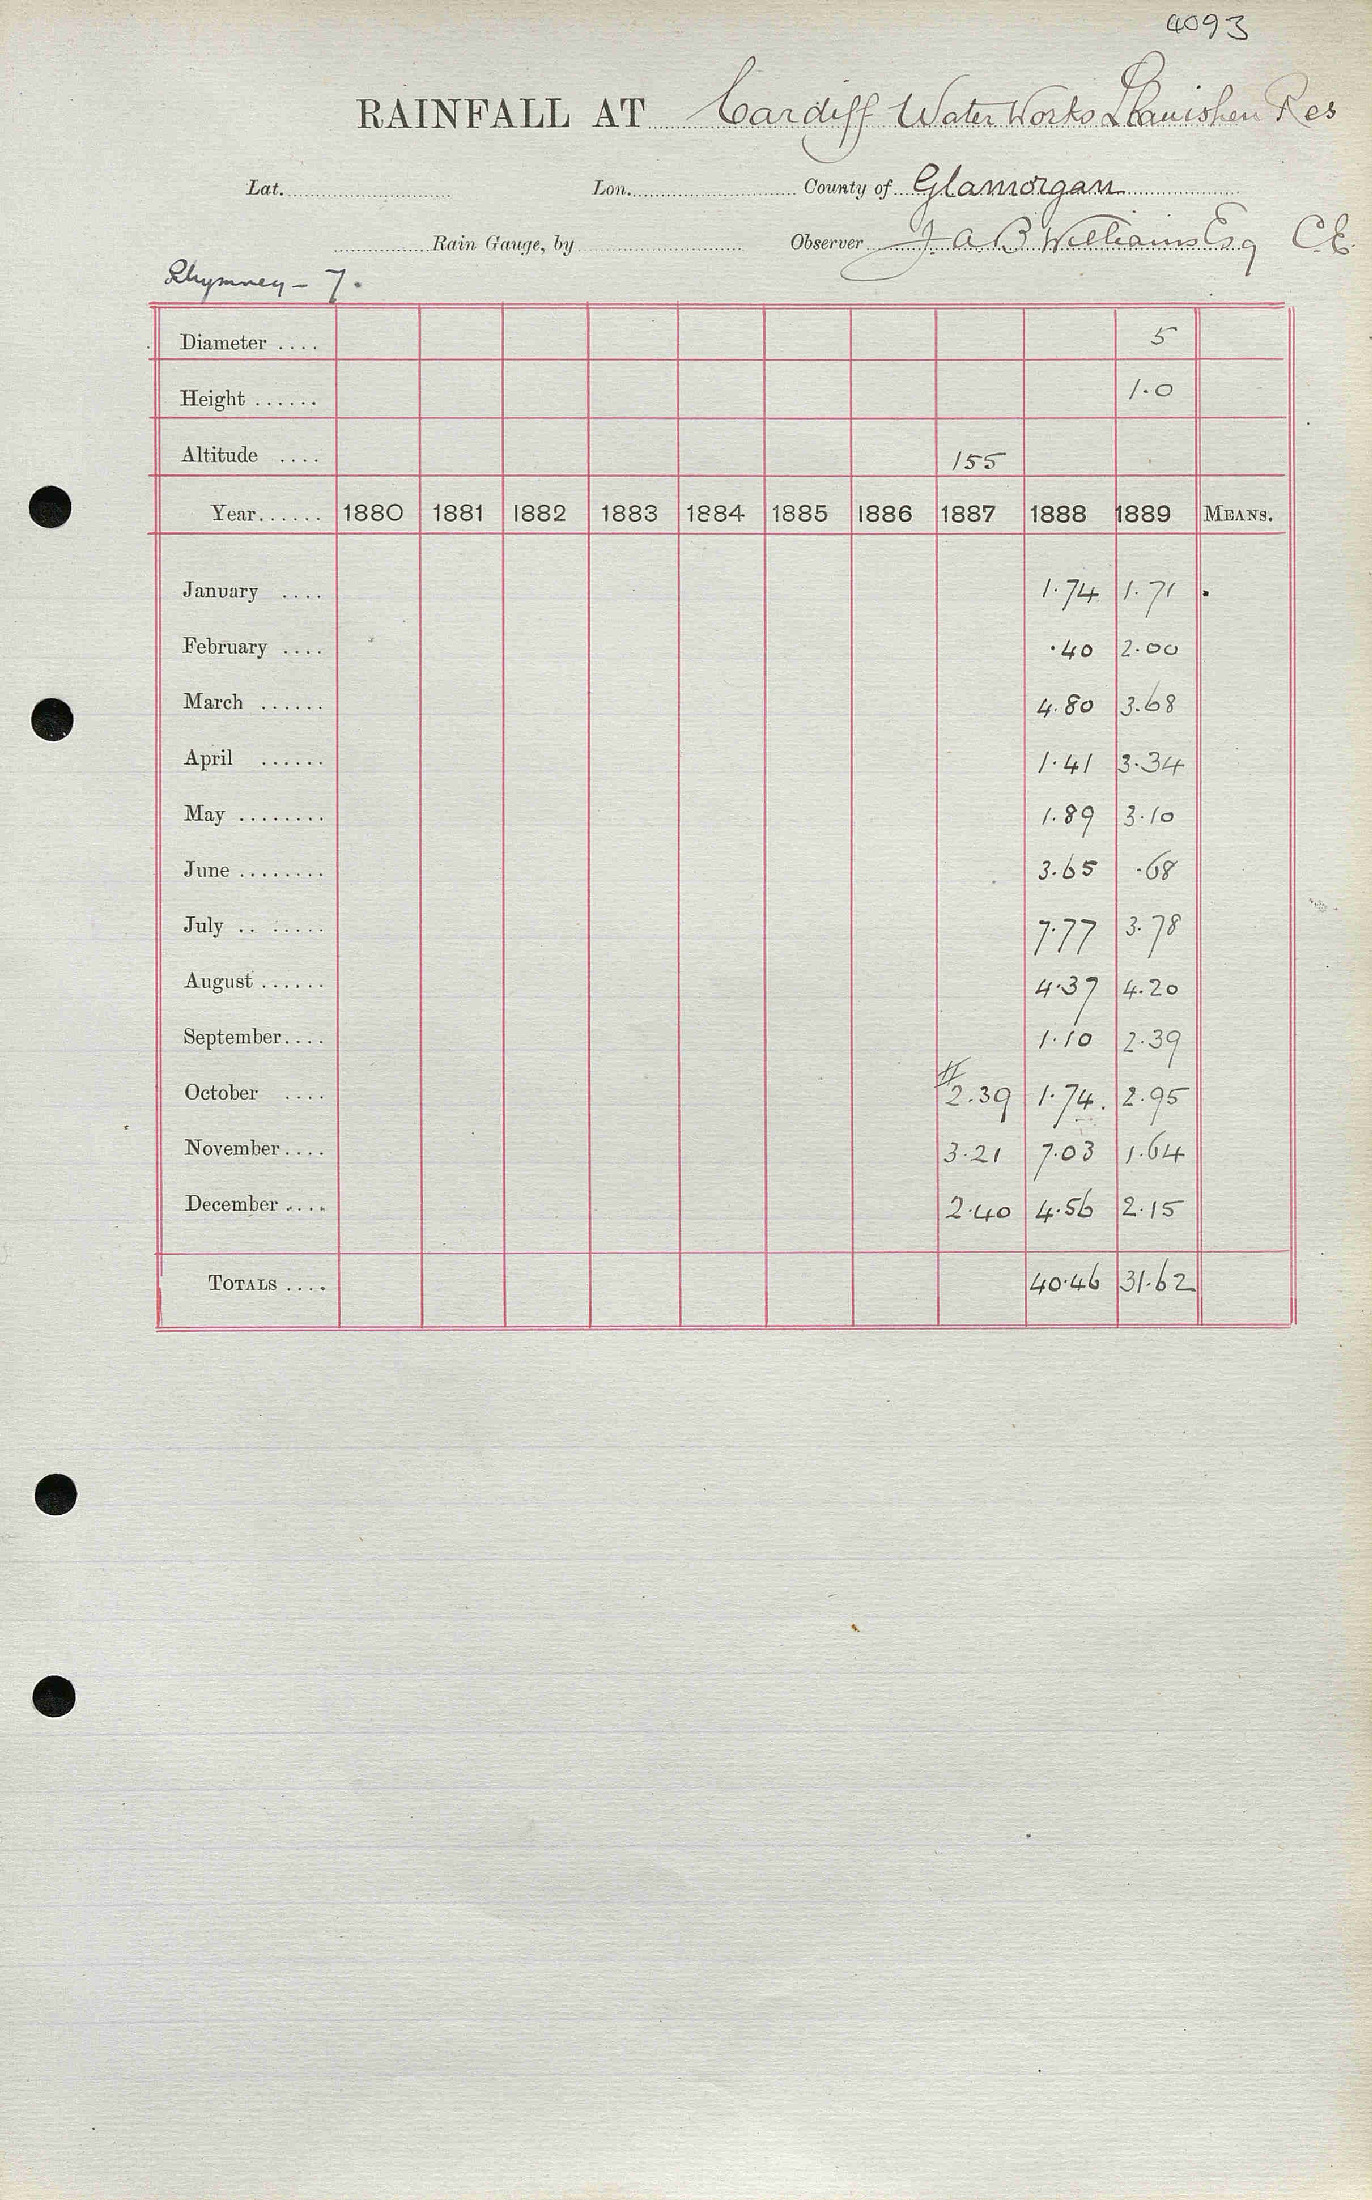 4093
RAINFALL AT Cardiff Water Works Llanishen Res
Lat. Lon. County of Glamorgan
Rain Gauge, by Observer J. A. B. Williams Esq C.E.
Rhymney – 7.
Diameter .... 5
Height ...... 1.0
Altitude .... 155
Year...... 1880 1881 1882 1883 1884 1885 1886 1887 1888 1889 MEANS.
January .... 1.74 1.71
February .... .40 2.00
March ...... 4.80 3.68
April ...... 1.41 3.34
May ........ 1.89 3.10
June ........ 3.65 .68
July .. ...... 7.77 3.78
August ...... 4.37 4.20
September.... 1.10 2.39
October .... #2.39 1.74. 2.95
November.... 3.21 7.03 1.64
December .... 2.40 4.56 2.15
TOTALS .... 40.46 31.62